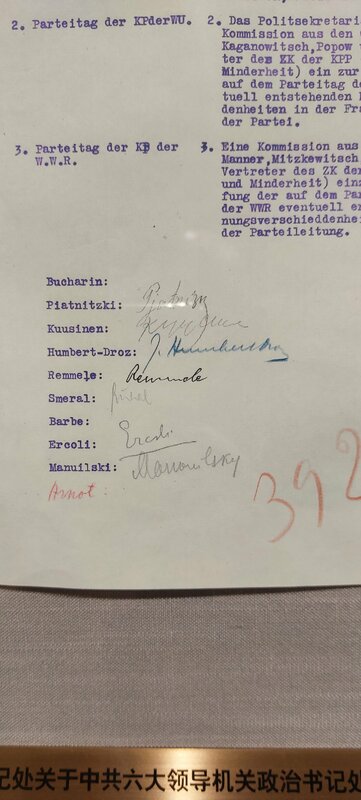 2. Parteitag der KPderWU.
2. Das Politsekretari
Kommission aus den
Kaganowitsch,Popow
ter des ZK der KPP
Minderheit) ein zur
auf dem Parteitag de
tuell entstehenden
denheiten in der Fra
der Partei.
3. Parteitag der KP der
W.W.R.
3. Eine Kommission aus
Manner,Mitzkewitsch
Vertreter des ZK der
und Minderheit) einz
fung der auf dem Par
der WWR eventuell er
nungsverschiedenhei
der Parteileitung.
Bucharin:
Piatnitzki: Piatnizky
Kuusinen:
Humbert-Droz: J. Humbert-Droz
Remmele: Remmele
Smeral:
Barbe:
Ercoli: Ercoli
Manuilski: Manouilsky
Arnot:
392
记处关于中共六大领导机关政治书记处